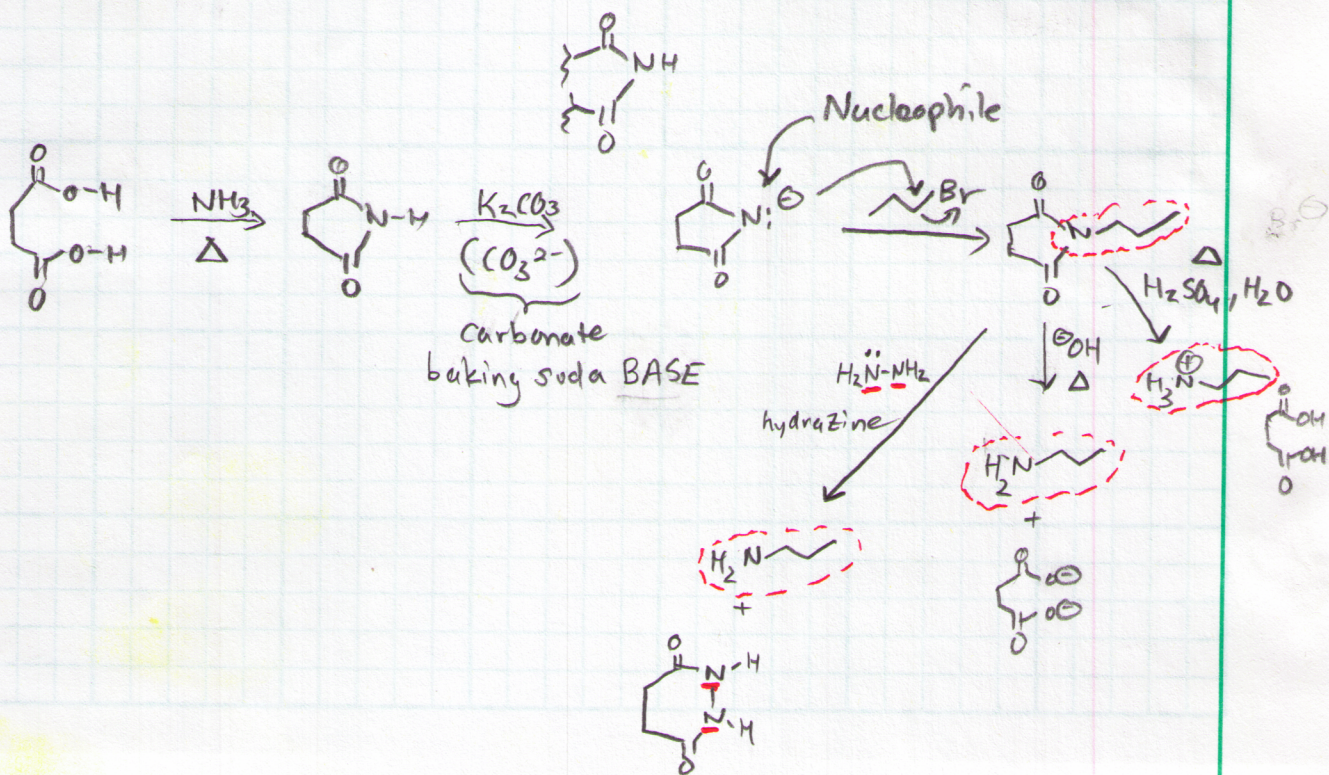 O
NH
O
Nucleophile
O
O-H
O-H
O
NH3
Δ
O
N-H
O
K2CO3
(CO3 2-)
carbonate
baking suda BASE
O
N: ⊖
O
Br
O
N
O
Br⊖
Δ
H2SO4, H2O
⊖OH
Δ
H2N̈-NH2
hydrazine
H3N⊕
O
OH
OH
O
H2N
+
O
O⊖
O⊖
O
H2N
+
O
N-H
N-H
O